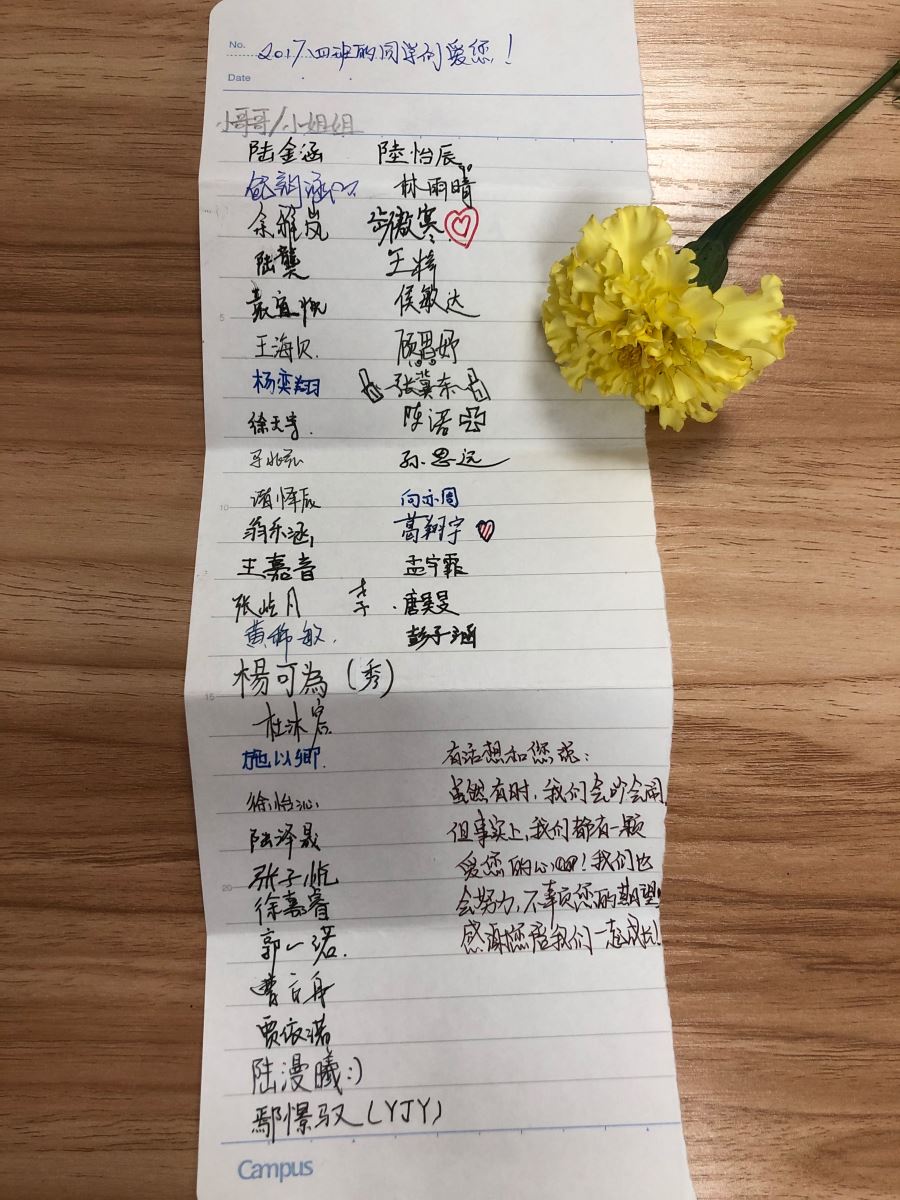 No.
2017四班的同学们爱您！
Date
小哥哥/小姐姐
陆金涵 陸怡辰
林雨晴
余雅岚 步微寒
陆龑 王梓
袁宜悦 侯敏达
5
王海贝. 顾昌妤
杨奕翔 张冀东
徐天 陈语
孙思远
10
向亦周
翁乐涵 葛翔宇
王嘉音 孟宁霏
张屹月 李 唐昊旻
黄 敏. 彭子涵
楊可為(秀)
15
杜沐宸
施以卿. 有话想和您说:
徐怡沁 虽然有时,我们会吵会闹
陆泽晟 但事实上,我们都有一颗
张子忱 爱您的心!我们也
20
徐嘉睿 会努力,不辜负您的期望!
郭一诺. 感谢您陪我们一起成长!
曹言身
贾依诺
陆漫曦:)
鄢憬驭(YJY)
Campus